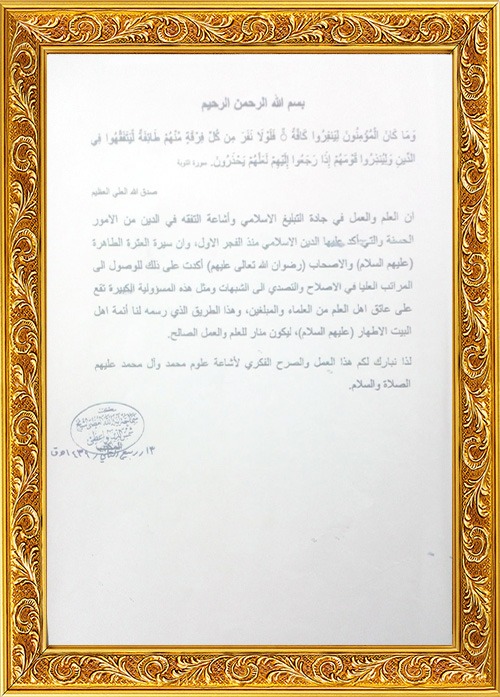 بسم الله الرحمن الرحيم
وَمَا كَانَ الْمُؤْمِنُونَ لِيَنفِرُوا كَافَّةً ۚ فَلَوْلَا نَفَرَ مِن كُلِّ فِرْقَةٍ مِّنْهُمْ طَائِفَةٌ لِّيَتَفَقَّهُوا فِي
الدِّينِ وَلِيُنذِرُوا قَوْمَهُمْ إِذَا رَجَعُوا إِلَيْهِمْ لَعَلَّهُمْ يَحْذَرُونَ. سورة التوبة
صدق الله العلي العظيم
ان العلم والعمل في جادة التبليغ الاسلامي وأشاعة التفقه في الدين من الامور
الحسنة والتي أكد عليها الدين الاسلامي منذ الفجر الاول، وان سيرة العترة الطاهرة
(عليهم السلام) والاصحاب (رضوان الله تعالى عليهم) أكدت على ذلك للوصول الى
المراتب العليا في الاصلاح والتصدي الى الشبهات ومثل هذه المسؤولية الكبيرة تقع
على عاتق اهل العلم من العلماء والمبلغين، وهذا الطريق الذي رسمه لنا أئمة اهل
البيت الاطهار (عليهم السلام)، ليكون منار للعلم والعمل الصالح.
لذا نبارك لكم هذا العمل والصرح الفكري لأشاعة علوم محمد وآل محمد عليهم
الصلاة والسلام.
١٣ / ربيع الثاني / ١٤٣٩ هـ ق